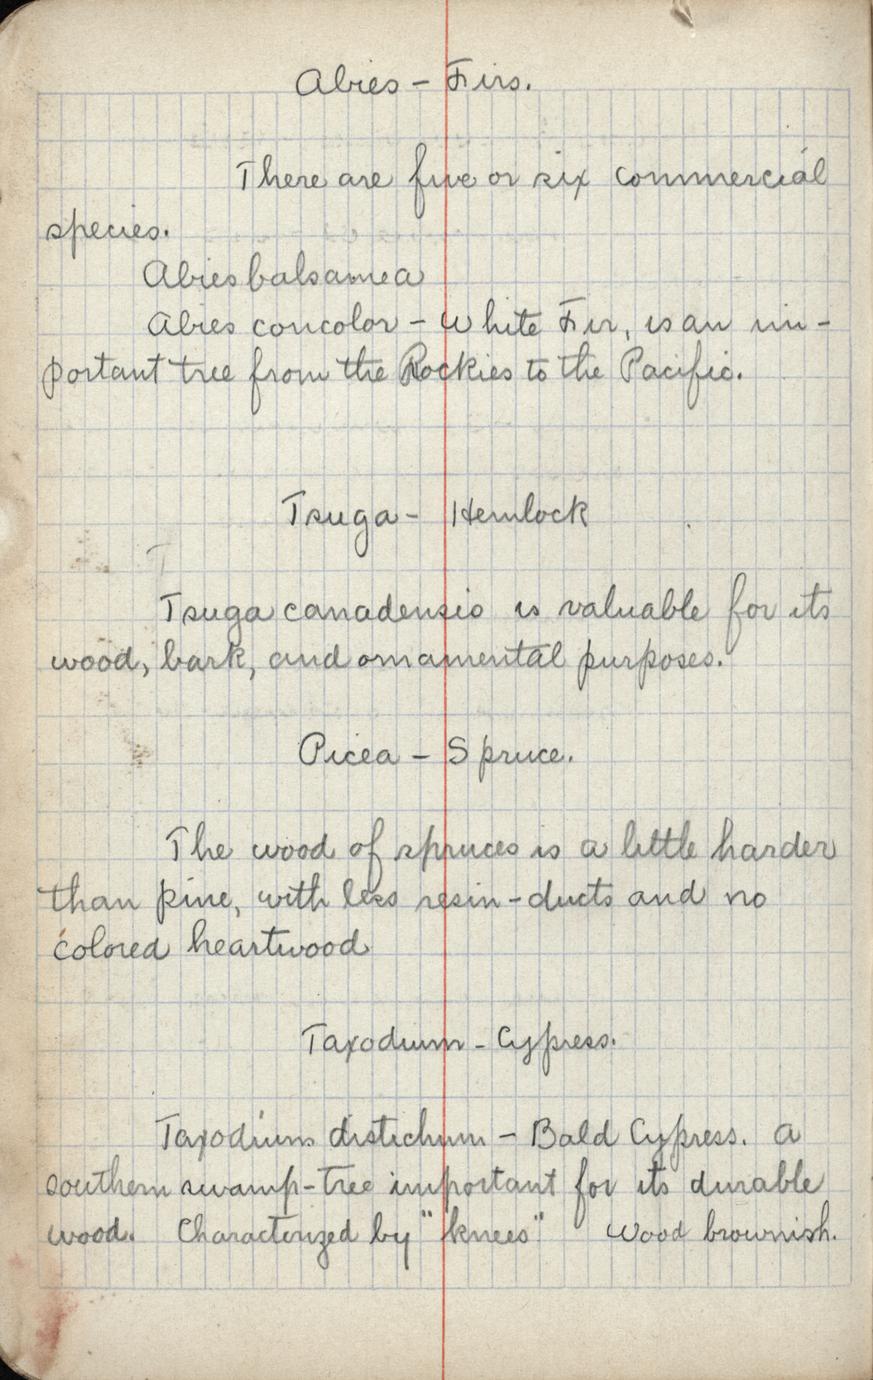 Abies - Firs.
There are five or six commercial
species.
Abies balsamea
Abies concolor - White Fir, is an im-
portant tree from the Rockies to the Pacific.
Tsuga - Hemlock
Tsuga canadensis is valuable for its
wood, bark, and ornamental purposes.
Picea - Spruce.
The wood of spruces is a little harder
than pine, with less resin-ducts and no
colored heartwood
Taxodium - Cypress.
Taxodium distichum - Bald Cypress. A
southern swamp-tree important for its durable
wood. Characterized by "knees" Wood brownish.